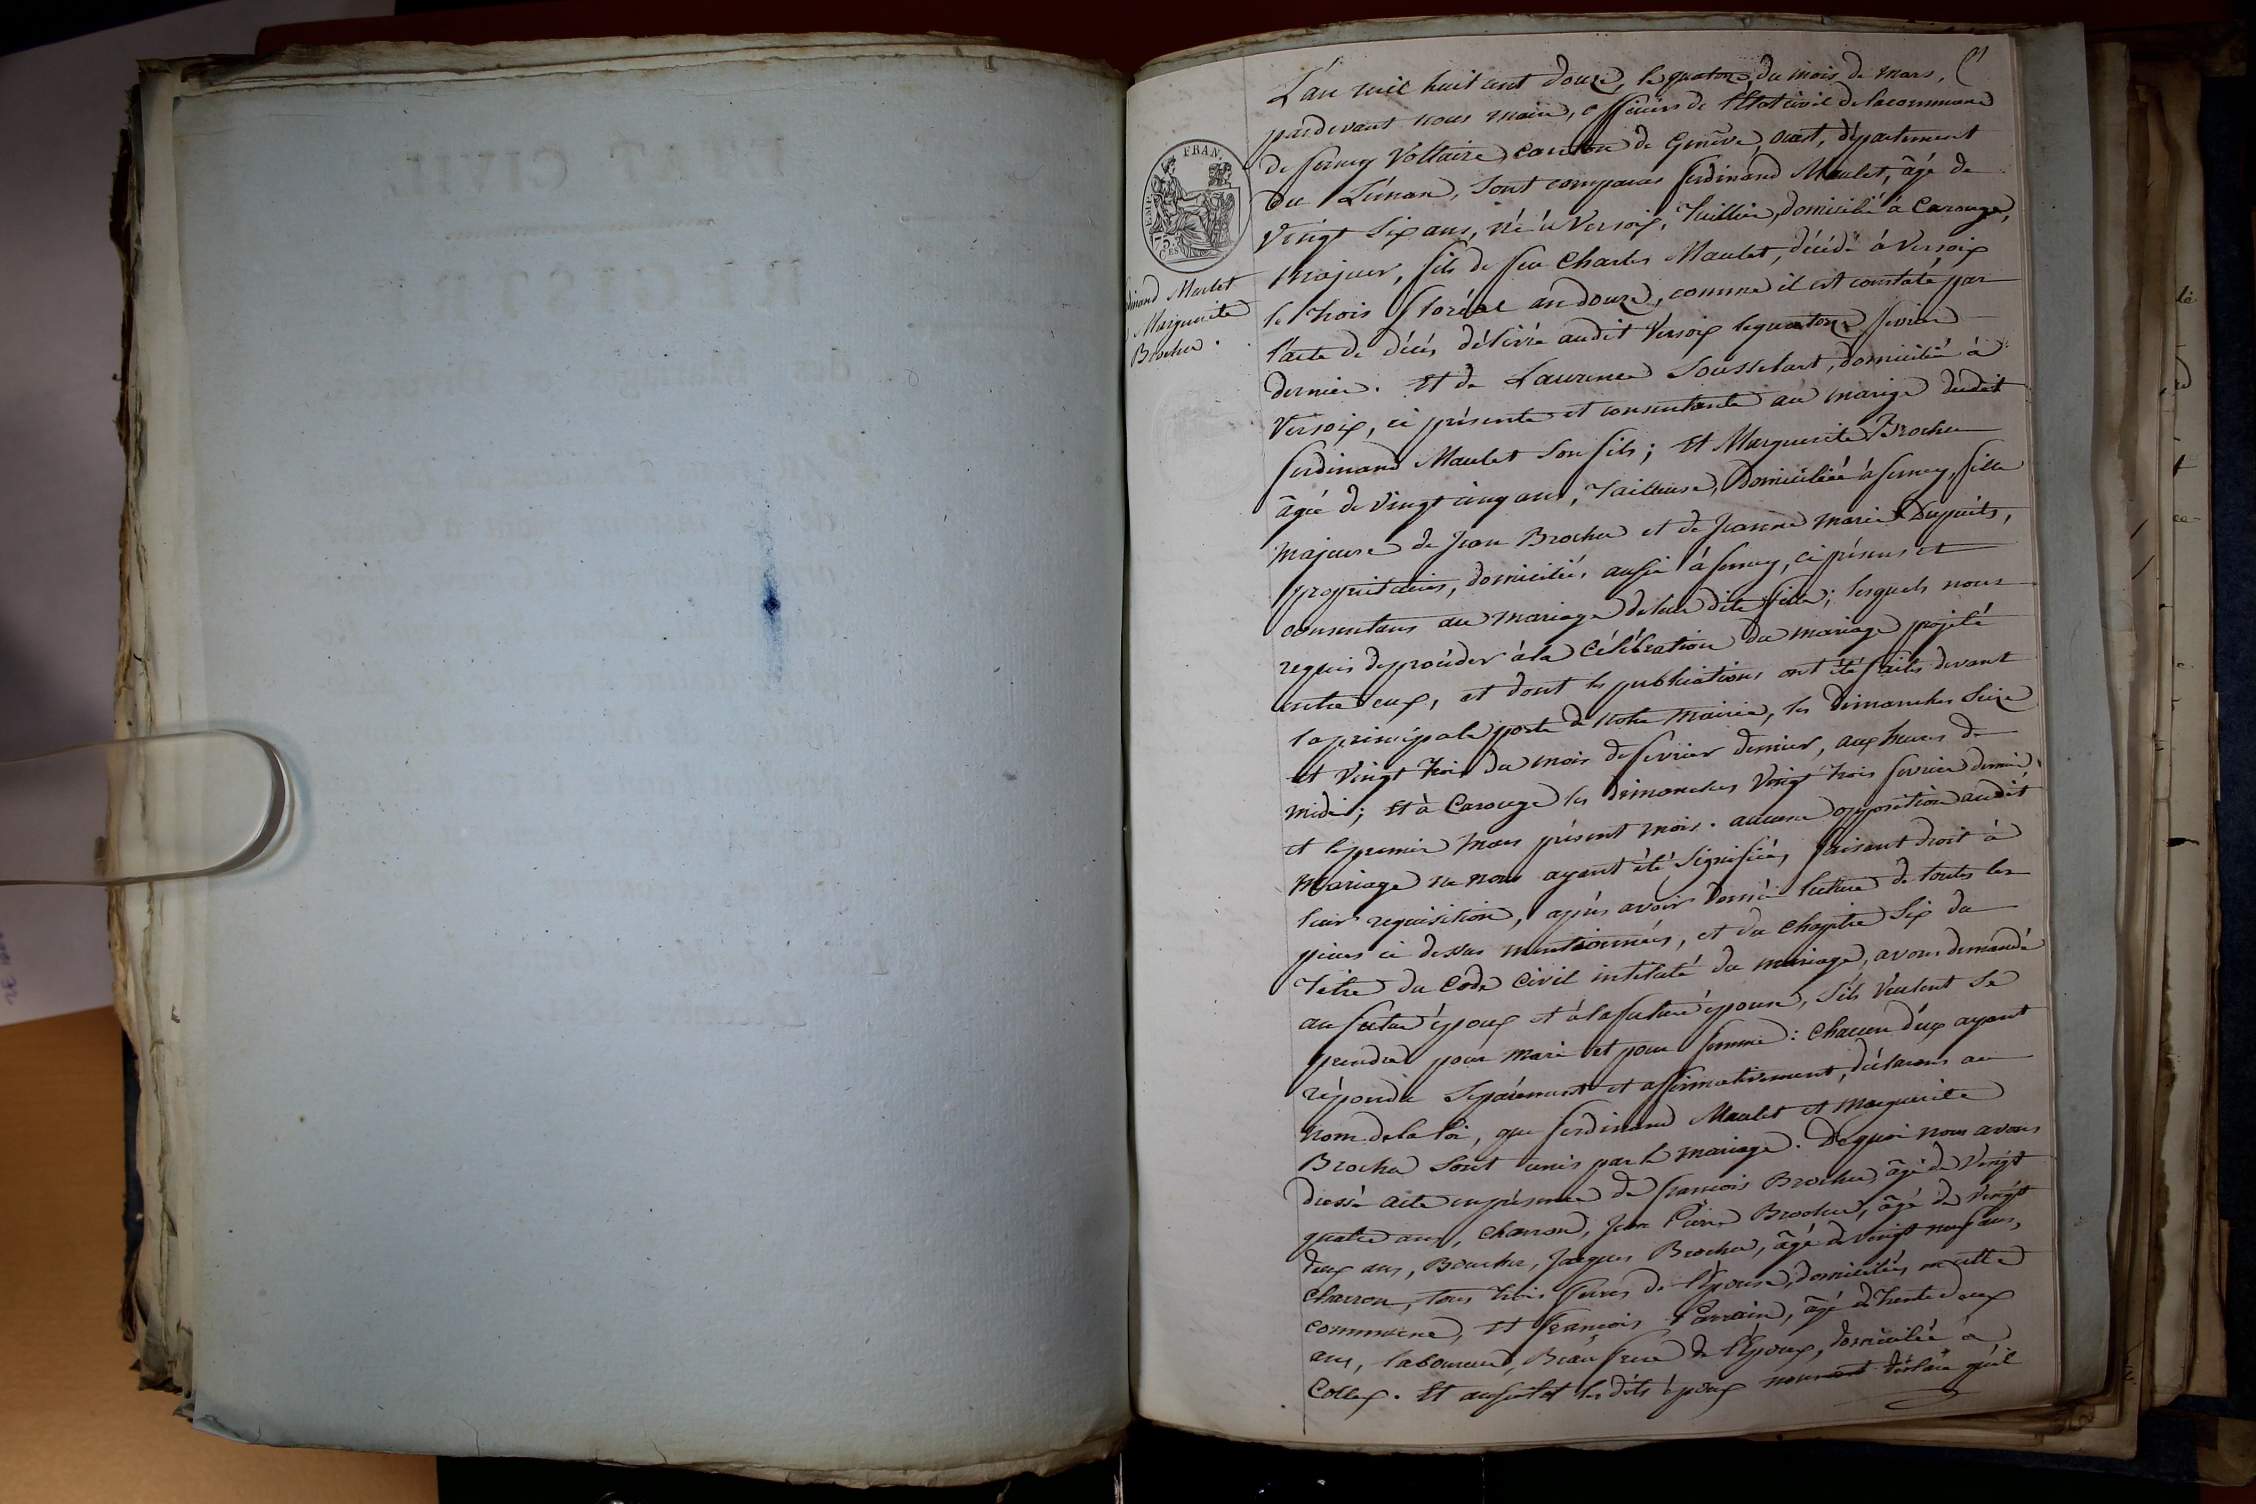 L'an mil huit cent douze, le quatorze du mois de mars,
pardevant nous maire, officiers de l'Etat civil de la commune
de ferney Voltaire, canton de Genève, ouest, département
du Léman, sont comparus ferdinand Maulet, âgé de
Vingt six ans, né à Versoix, Tuillier, domicilié à Carouge,
majeur, fils de feu Charles Maulet, décédé à Versoix
le trois floréal an douze, comme il est constaté par
l'acte de décés délivré audit Versoix le quatorze fevrier
dernier. Et de Laurence Sousselart, domiciliée à
Versoix, ci présente et consentante au mariage dudit
ferdinand Maulet son fils; Et Marguerite Brocher
âgée de vingt cinq ans, Tailleuse, domiciliée à ferney, fille
majeure de Jean Brocher et de Jeanne marie Dupuits,
propriétaires, domiciliés aussi à ferney, ci présens et
consentans au mariage de leur dite fille; lesquels nous
requis de procéder à la célébration du mariage projeté
entre eux, et dont les publications ont été faites devant
la principale porte de notre mairie, les dimanches seize
et vingt trois du mois de fevrier dernier, aux heures de
midi; Et à Carouge les dimanches vingt trois fevrier dernier
et le premier mars présent mois. aucune opposition audit
mariage ne nous ayant été signifiée, faisant droit à
leur requisition, après avoir donné lecture de toutes les
pieces ci dessus mentionnées, et du chapitre six du
Titre du Code Civil intitulé du mariage, avons demandé
au futur époux et à la future épouse, s'ils veulent se
prendre pour mari et pour femme: chacun d'eux ayant
répondu séparément et affirmativement, déclarons au
nom de la loi, que ferdinand Maulet et marguerite
Brocher sont unis par le mariage. De quoi nous avons
dressé acte en présence de francois Brocher, âgé de vingt
quatre ans, charron, Jean Pierre Brocher, âgé de vingt
deux ans, Boucher, Jacques Brocher, âgé de vingt neuf ans,
charron, tous trois freres de l'épouse, domiciliés en cette
commune, Et françois Parrain, âgé de trente deux
ans, laboureur, Beau frere de l'époux, domicilié à
Collex. Et aussitot les dits époux nous ont déclaré qu'il
FRAN.
75 CES
dinand Maulet
Marguerite
Brocher.